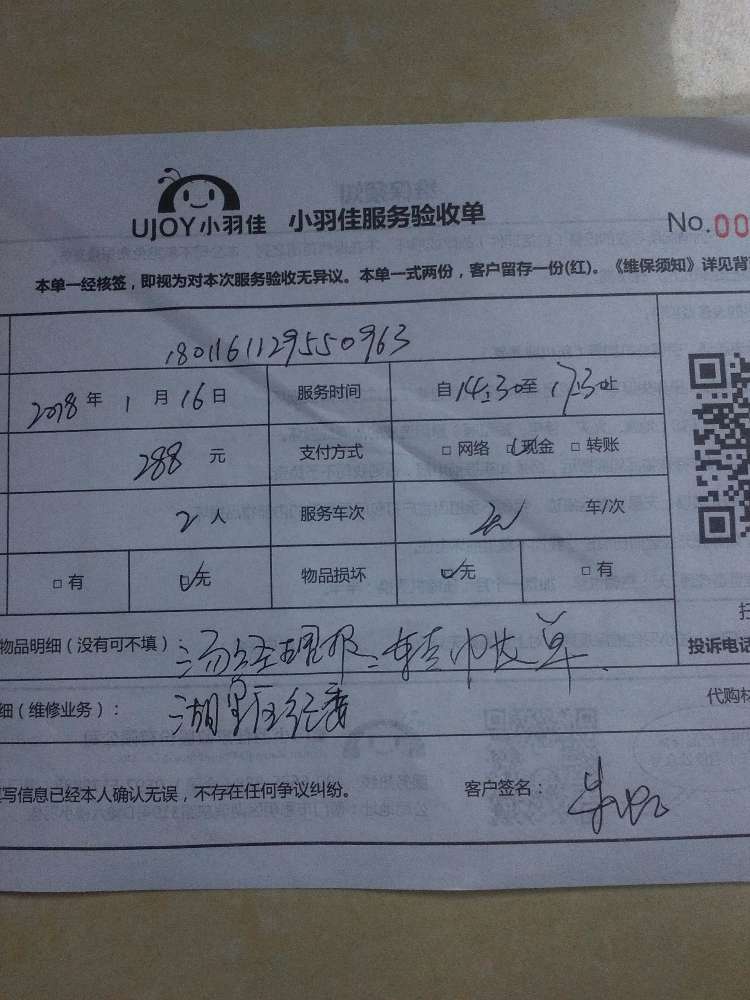 UJOY小羽佳 小羽佳服务验收单
No.00
本单一经核签，即视为对本次服务验收无异议。本单一式两份，客户留存一份(红)。《维保须知》详见背
1801161129550963
2018年1月16日 服务时间 自14:30至17:30止
288元 支付方式 □网络 □现金 □转账
2人 服务车次 车/次
□有 □无 物品损坏 □无 □有
物品明细（没有可不填）：
投诉电话
细（维修业务）：湖里区经委 代购材
写信息已经本人确认无误，不存在任何争议纠纷。 客户签名：